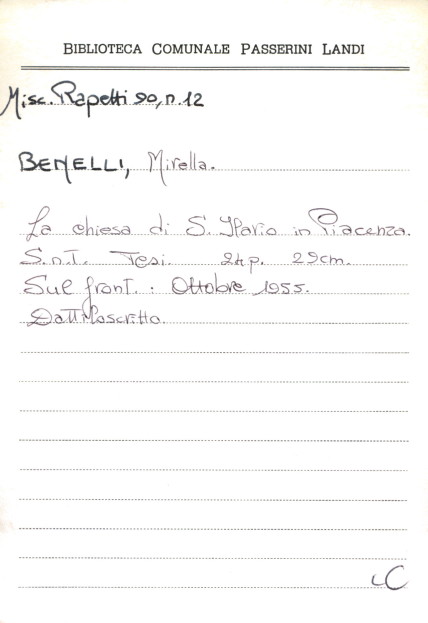 BIBLIOTECA COMUNALE PASSERINI LANDI
Misc. Rapetti 90, n. 12
BENELLI, Mirella.
La chiesa di S. Ilario in Piacenza.
S.n.t. Tesi. 24p. 29cm.
Sul front. : Ottobre 1955.
Dattiloscritto.
LC